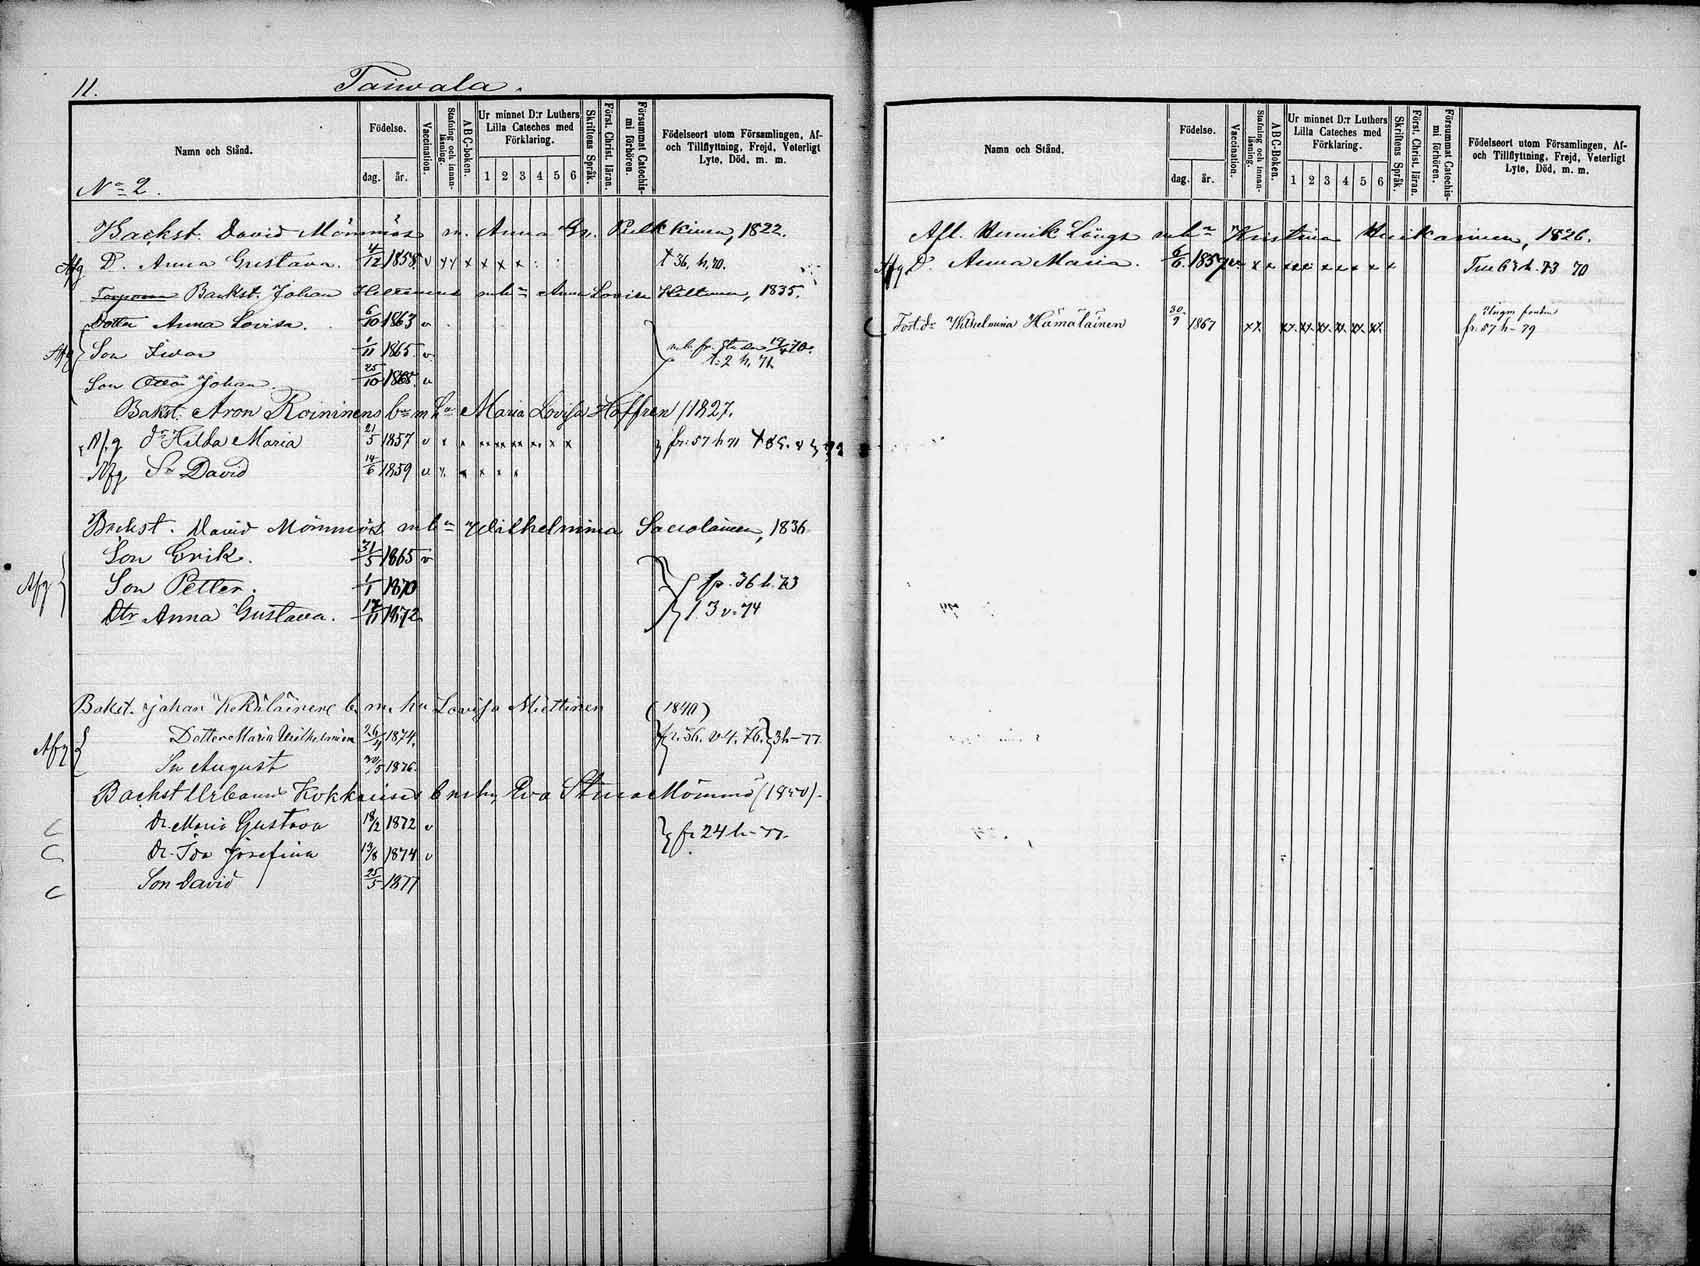 11. Taiwala.
Namn och Stånd.
Födelse.
dag. år.
Vaccination.
Stafning och innanläsning.
ABC-boken.
Ur minnet D:r Luthers Lilla Cateches med Förklaring.
1 2 3 4 5 6
Skriftens Språk.
Först. Christ. läran.
Försummat Catechismi förhören.
Födelseort utom Församlingen, Af- och Tillflyttning, Frejd, Veterligt Lyte, Död, m. m.
No 2.
Backst. David Mömmös m. Anna Gr. Pulkkinen, 1822.
Afg D. Anna Gustava. 4/12 1858 v x x x x x x † 36, h, 70.
Backst. Johan Hiltunens mh:n Anna Lovisa Hiltunen, 1835.
Dotter Anna Lovisa. 6/10 1863 v
Afg Son Iivar 1/11 1865 v
Son Otto Johan. 25/10 1868 v
Bakst. Aron Roininens b:n m h:u Maria Lovisa Hoffren /1827.
Afg dr Hilda Maria 21/5 1857 v x x xx xx xx x x x fr. 57 h 71
Afg Sn David 14/6 1859 v x x x x x
Backst. David Mömmös mh:n Wilhelmina Savolainen, 1836
Son Erik. 31/5 1865 v
Afg Son Petter. 1/1 1870 fr. 36 h. 73
Dtr Anna Gustava. 17/11 1872 1 3 v. 74
Bakst. Johan Kokälainens b. m. hu Lovisa Miettinen (1840)
Afg Dotter Maria Wilhelmina 26/4 1874. fr. 36. v 4. 76. 3 h-77
Sn August 30/5 1876.
Backst Urbanus Kokkonens b m hu Eva Stina Mömmö
Dr Maria Gustava 18/2 1872 v fr 24 h-77.
Dr. Ida Josefina 13/8 1874 v
Son David 25/5 1877
Namn och Stånd.
Födelse.
dag. år.
Vaccination.
Stafning och innanläsning.
ABC-boken.
Ur minnet D:r Luthers Lilla Cateches med Förklaring.
1 2 3 4 5 6
Skriftens Språk.
Först. Christ. läran.
Försummat Catechismi förhören.
Födelseort utom Församlingen, Af- och Tillflyttning, Frejd, Veterligt Lyte, Död, m. m.
Afl. Henrik Längs mh:n Kristina Huikarinen, 1826.
Afg D. Anna Maria. 6/6 1857 v x x xxx x x x x x
Fost.dr Wilhelmina Hämäläinen 30/9 1857 xx xx xx xx xx xx xx fr. 57 h-79